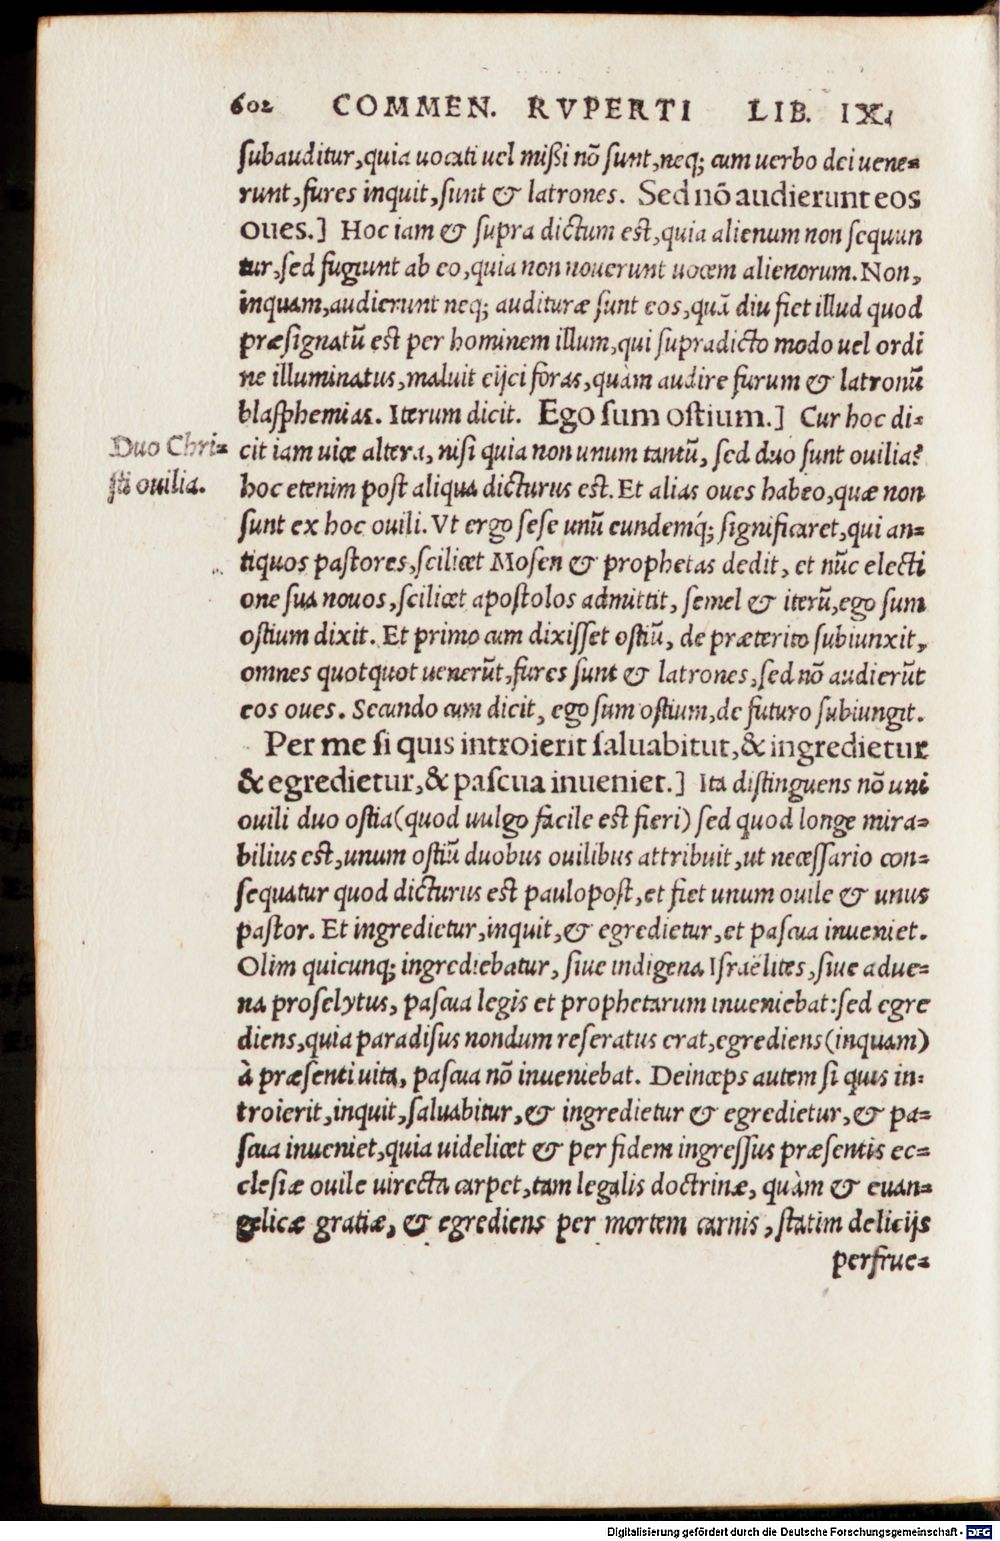 602 COMMEN. RVPERTI LIB. IX.
ſubauditur, quia uocati uel mißi nõ ſunt, neq; cum uerbo dei uene-
runt, fures inquit, ſunt & latrones. Sed nõ audierunt eos
oues.] Hoc iam & ſupra dictum eſt, quia alienum non ſequun
tur, ſed fugiunt ab eo, quia non nouerunt uocem alienorum. Non,
inquam, audierunt neq; audituræ ſunt eos, quã diu fiet illud quod
præſignatũ eſt per hominem illum, qui ſupradicto modo uel ordi
ne illuminatus, maluit eijci foras, quàm audire furum & latronũ
blaſphemias. Iterum dicit. Ego ſum oſtium.] Cur hoc di-
Duo Chri-
ſti ouilia.
cit iam uice altera, niſi quia non unum tantũ, ſed duo ſunt ouilia?
hoc etenim poſt aliqua dicturus eſt. Et alias oues habeo, quæ non
ſunt ex hoc ouili. Vt ergo ſeſe unũ eundemq́; ſignificaret, qui an-
tiquos paſtores, ſcilicet Moſen & prophetas dedit, et nũc electi
one ſua nouos, ſcilicet apoſtolos admittit, ſemel & iterũ, ego ſum
oſtium dixit. Et primo cum dixiſſet oſtiũ, de præterito ſubiunxit,
omnes quotquot uenerũt, fures ſunt & latrones, ſed nõ audierũt
eos oues. Secundo cum dicit, ego ſum oſtium, de futuro ſubiungit.
Per me ſi quis introierit ſaluabitur, & ingredietur
& egredietur, & paſcua inueniet.] Ita diſtinguens nõ uni
ouili duo oſtia (quod uulgo facile eſt fieri) ſed quod longe mira-
bilius eſt, unum oſtiũ duobus ouilibus attribuit, ut neceſſario con-
ſequatur quod dicturus eſt paulopoſt, et fiet unum ouile & unus
paſtor. Et ingredietur, inquit, & egredietur, et paſcua inueniet.
Olim quicunq; ingrediebatur, ſiue indigena Iſraëlites, ſiue adue-
na proſelytus, paſcua legis et prophetarum inueniebat: ſed egre
diens, quia paradiſus nondum reſeratus erat, egrediens (inquam)
à præſenti uita, paſcua nõ inueniebat. Deinceps autem ſi quis in-
troierit, inquit, ſaluabitur, & ingredietur & egredietur, & pa-
ſcua inueniet, quia uidelicet & per fidem ingreſſus præſentis ec-
cleſiæ ouile uirecta carpet, tam legalis doctrinæ, quàm & euan-
gelicæ gratiæ, & egrediens per mortem carnis, ſtatim delicijs
perfrue-
Digitalisierung gefördert durch die Deutsche Forschungsgemeinschaft - DFG